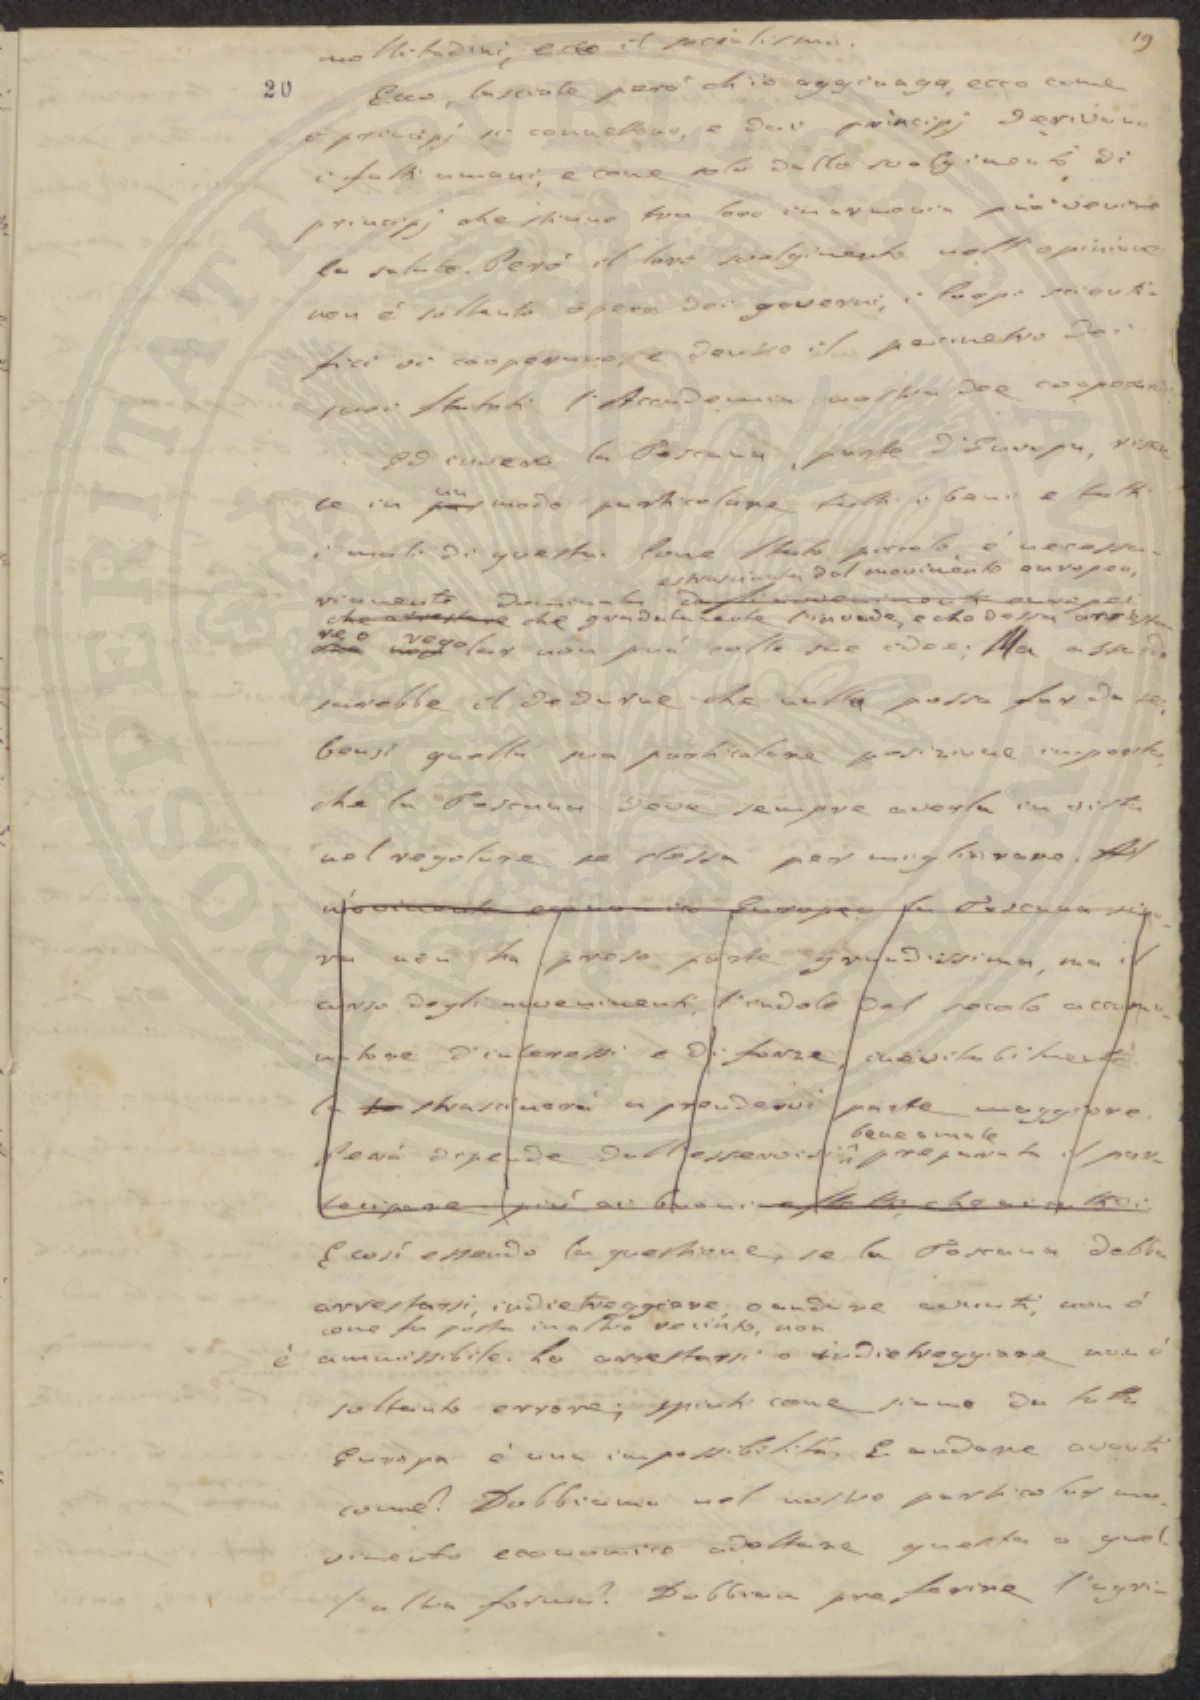 19
moltitudini, ecco il socialismo.
20
Ecco, lasciate però ch'io aggiunga, ecco come
e principj si connettono, e dai principj derivano
i fatti umani, e come solo dallo svolgimento di
principj che stiano tra loro in armonia può venire
la salute. Però il loro svolgimento nell'opinione
non è soltanto opera dei governi, i Corpi scienti-
fici vi cooperano, e dentro il perimetro dei
suoi Statuti l'Accademia nostra dee cooperarvi.
Ed invero la Toscana, parte d'Europa, risen-
te in un modo particolare tutti i beni e tutti
i mali di questa. Come Stato piccolo, è necessa-
estrascinata dal movimento europeo,
riamente dominata dagli avvenimenti europei
che arrestare che gradatamente l'invade, e che dessa arresta-
re o regolar non può colle sue idee; Ma assurdo
sarebbe il dedurne che nulla possa far da se;
bensì quella sua particolare posizione importa,
che la Toscana deve sempre averla in vista
nel regolare se stessa per migliorare. Al
movimento economico Europeo la Toscana sino-
ra non ha preso parte grandissima, ma il
corso degli avvenimenti, l'indole del secolo accumu-
latore d'interessi e di forze, inevitabilmente
la strascinerà a prendervi parte maggiore.
bene o male
Però dipende dall'esservisi preparata il par-
tecipare più ai buoni effetti, che ai cattivi.
E così essendo la questione, se la Toscana debba
arrestarsi, indietreggiare, o andare avanti, non è
come fu posta in altro recinto, non
è ammissibile. Lo arrestarsi o indietreggiare non è
soltanto errore; spinti come siamo da tutta
Europa è una impossibilità. E andare avanti
come? Dobbiamo nel nostro particolar mo-
vimento economico adottare questa o quel-
l'altra forma? Dobbiam preferire l'agri-
PROSPERITATI PUBLICAE AUGENDAE